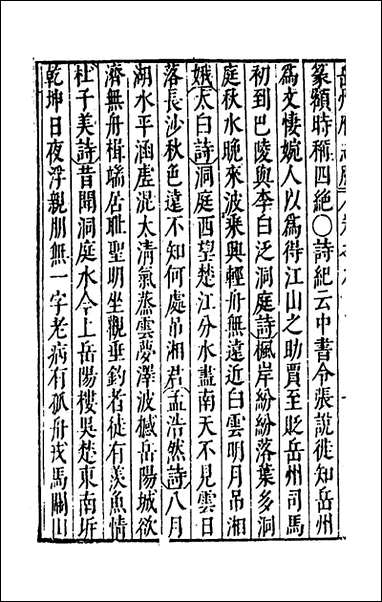 篆額時稱四絕〇詩紀云中書令張說徙知岳州
爲文悽婉人以爲得江山之助賈至貶岳州司馬
初到巴陵與李白泛洞庭詩楓岸紛紛落葉多洞
庭秋水晚來波乘興輕舟無遠近白雲明月吊湘
娥太白詩洞庭西望楚江分水盡南天不見雲日
落長沙秋色遠不知何處吊湘君孟浩然詩八月
湖水平涵虛混太清氣蒸雲夢澤波撼岳陽城欲
濟無舟楫端居恥聖明坐觀垂釣者徒有羨魚情
杜子美詩昔聞洞庭水今上岳陽樓吳楚東南坼
乾坤日夜浮親朋無一字老病有孤舟戎馬關山